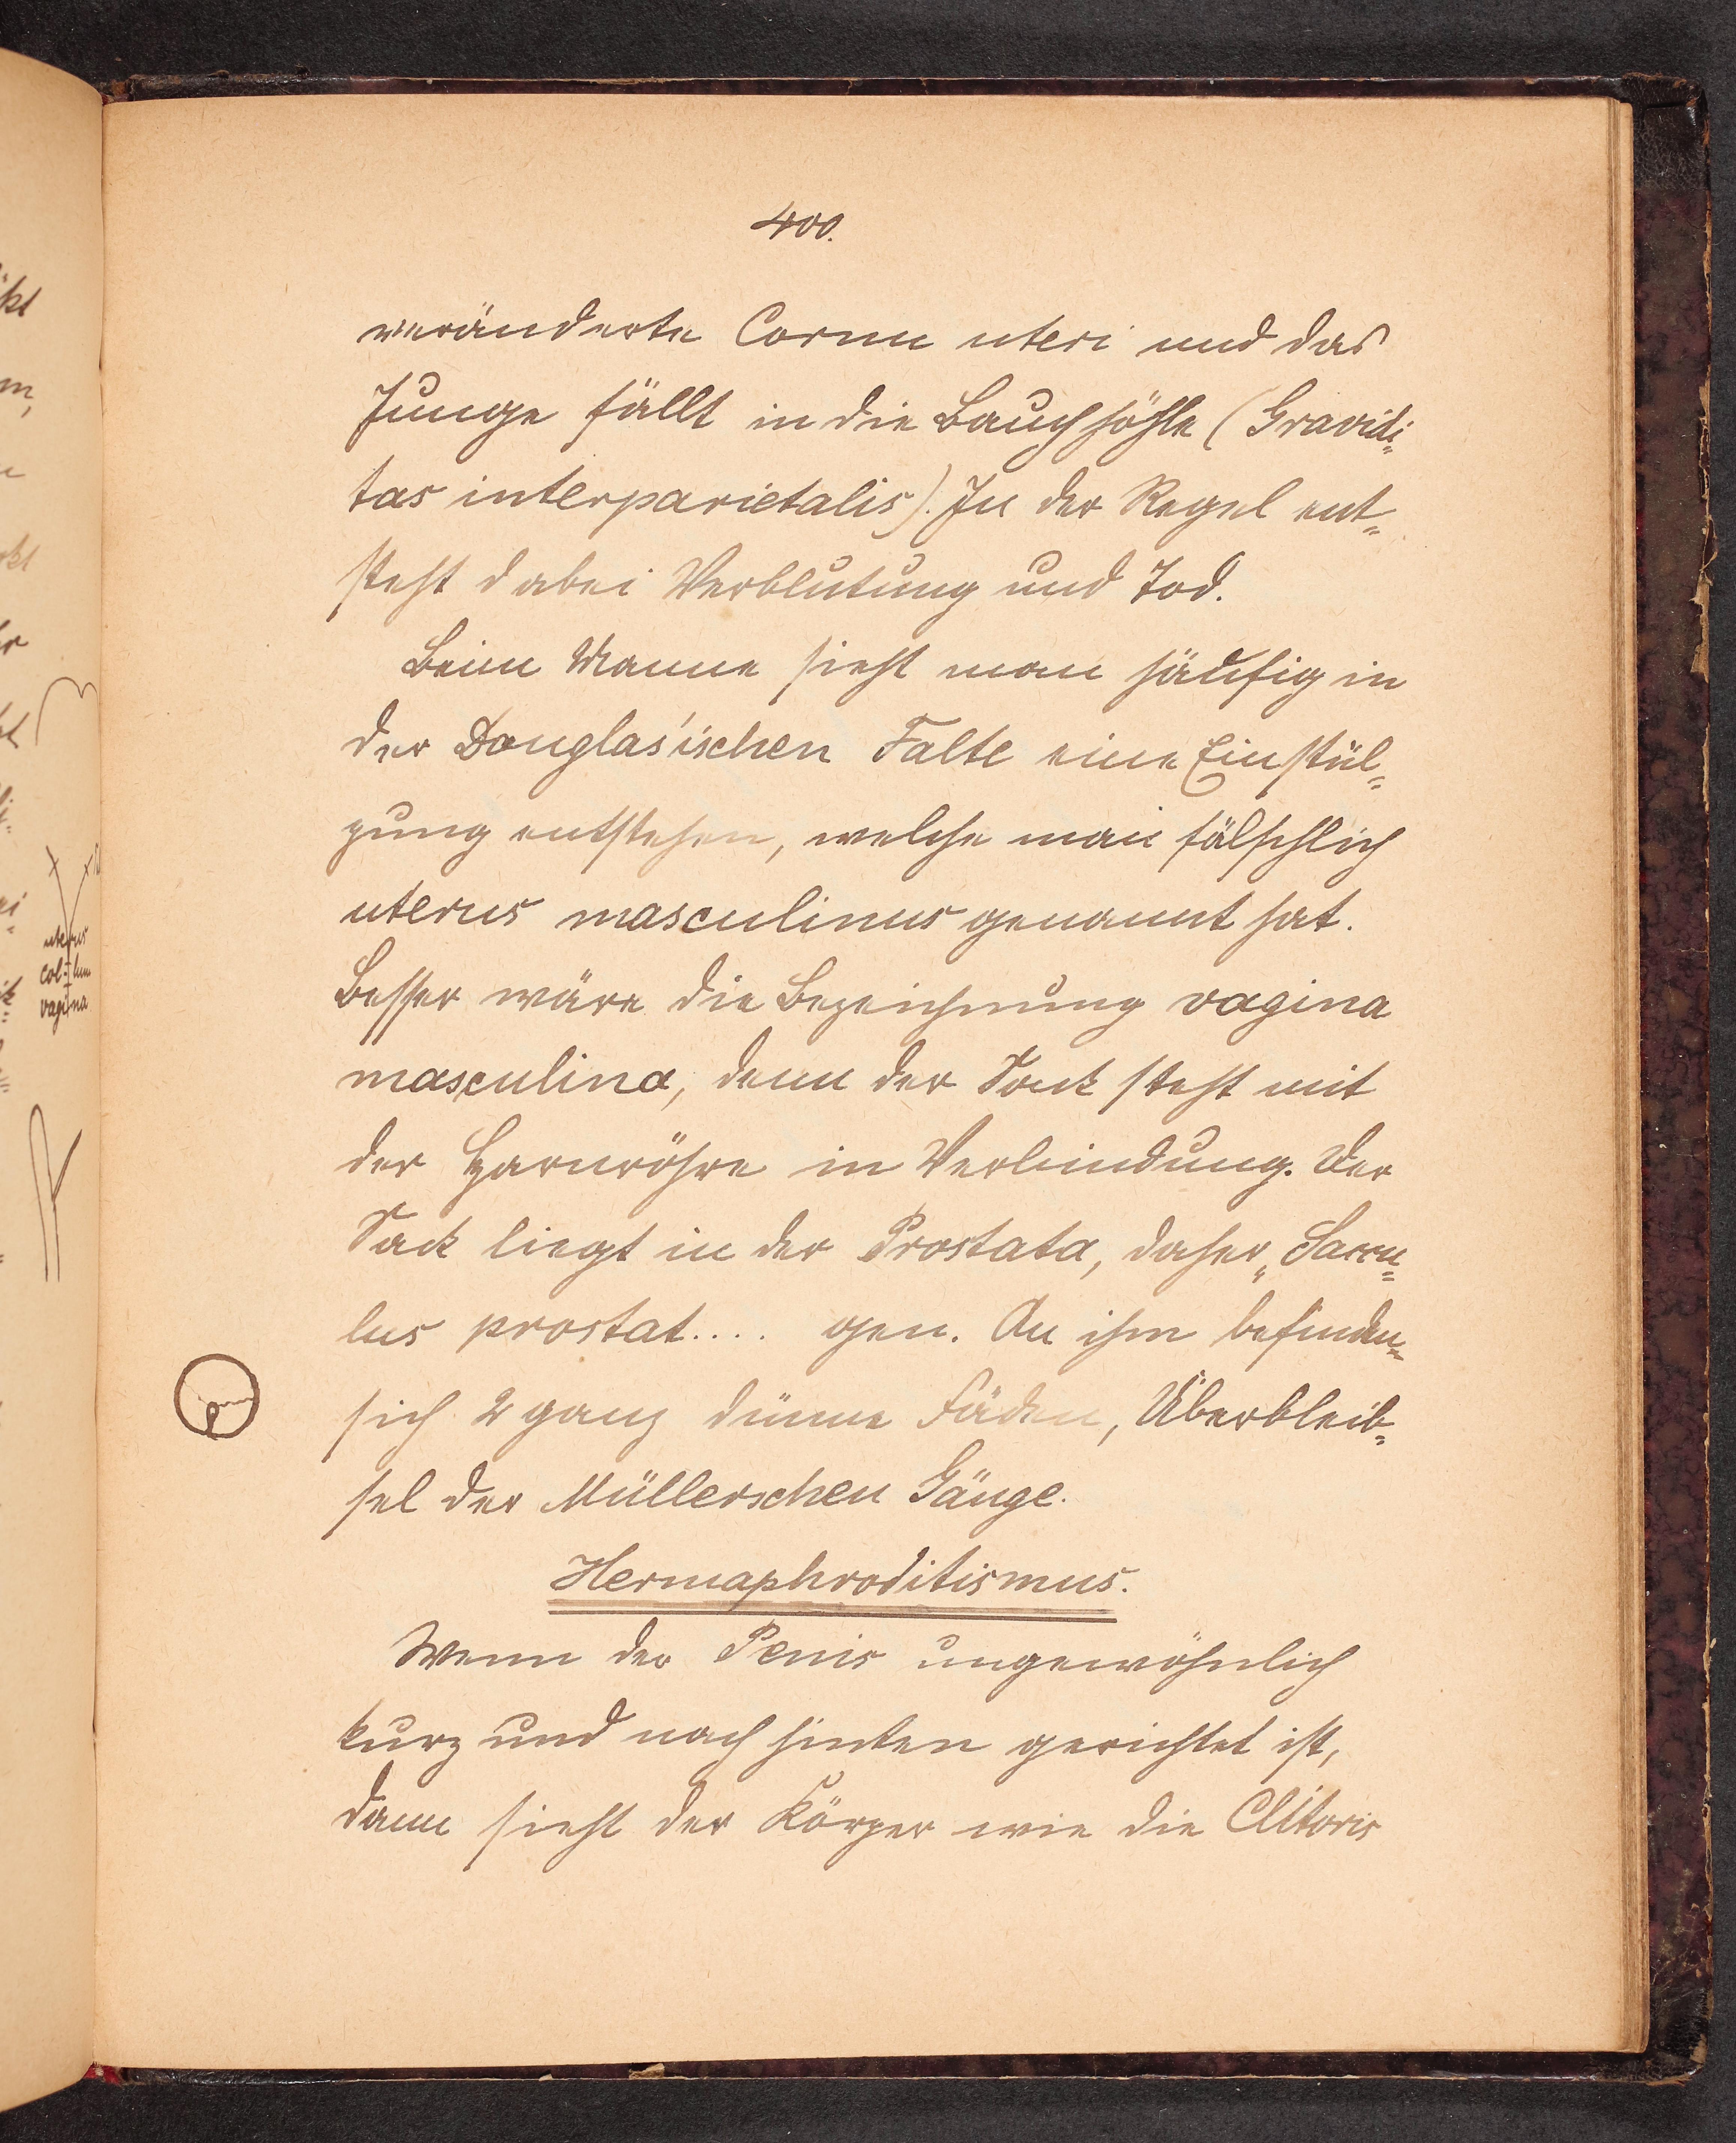 400.
veränderte Cornu uteri und das
Junge fällt in die Bauchhöhle (Gravidi-
tas interparietalis). In der Regel ent-
steht dabei Verblutung und Tod.
Beim Manne sieht man häufig in
der Douglas'ischen Falte eine Einstül-
pung entstehen, welche man fälschlich
uterus masculinus genannt hat.
Besser wäre die Bezeichnung vagina
masculina, denn der Sack steht mit
der Harnröhre in Verbindung. Der
Sack liegt in der Prostata, daher „Saccu-
lus prostat.... gen. An ihm befinden
sich 2 ganz dünne Fäden, Überbleib-
sel der Müllerschen Gänge.
Hermaphroditismus.
Wenn der Penis ungewöhnlich
kurz und nach hinten gerichtet ist,
dann sieht der Körper wie die Clitoris
uterus
collum
vagina